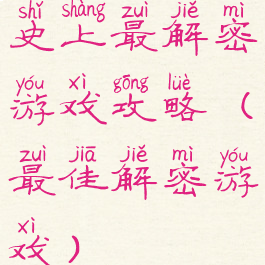 shǐ shàng zuì jiě mì
史上最解密
yóu xì gōng lüè
游戏攻略（
zuì jiā jiě mì yóu
最佳解密游
xì
戏）